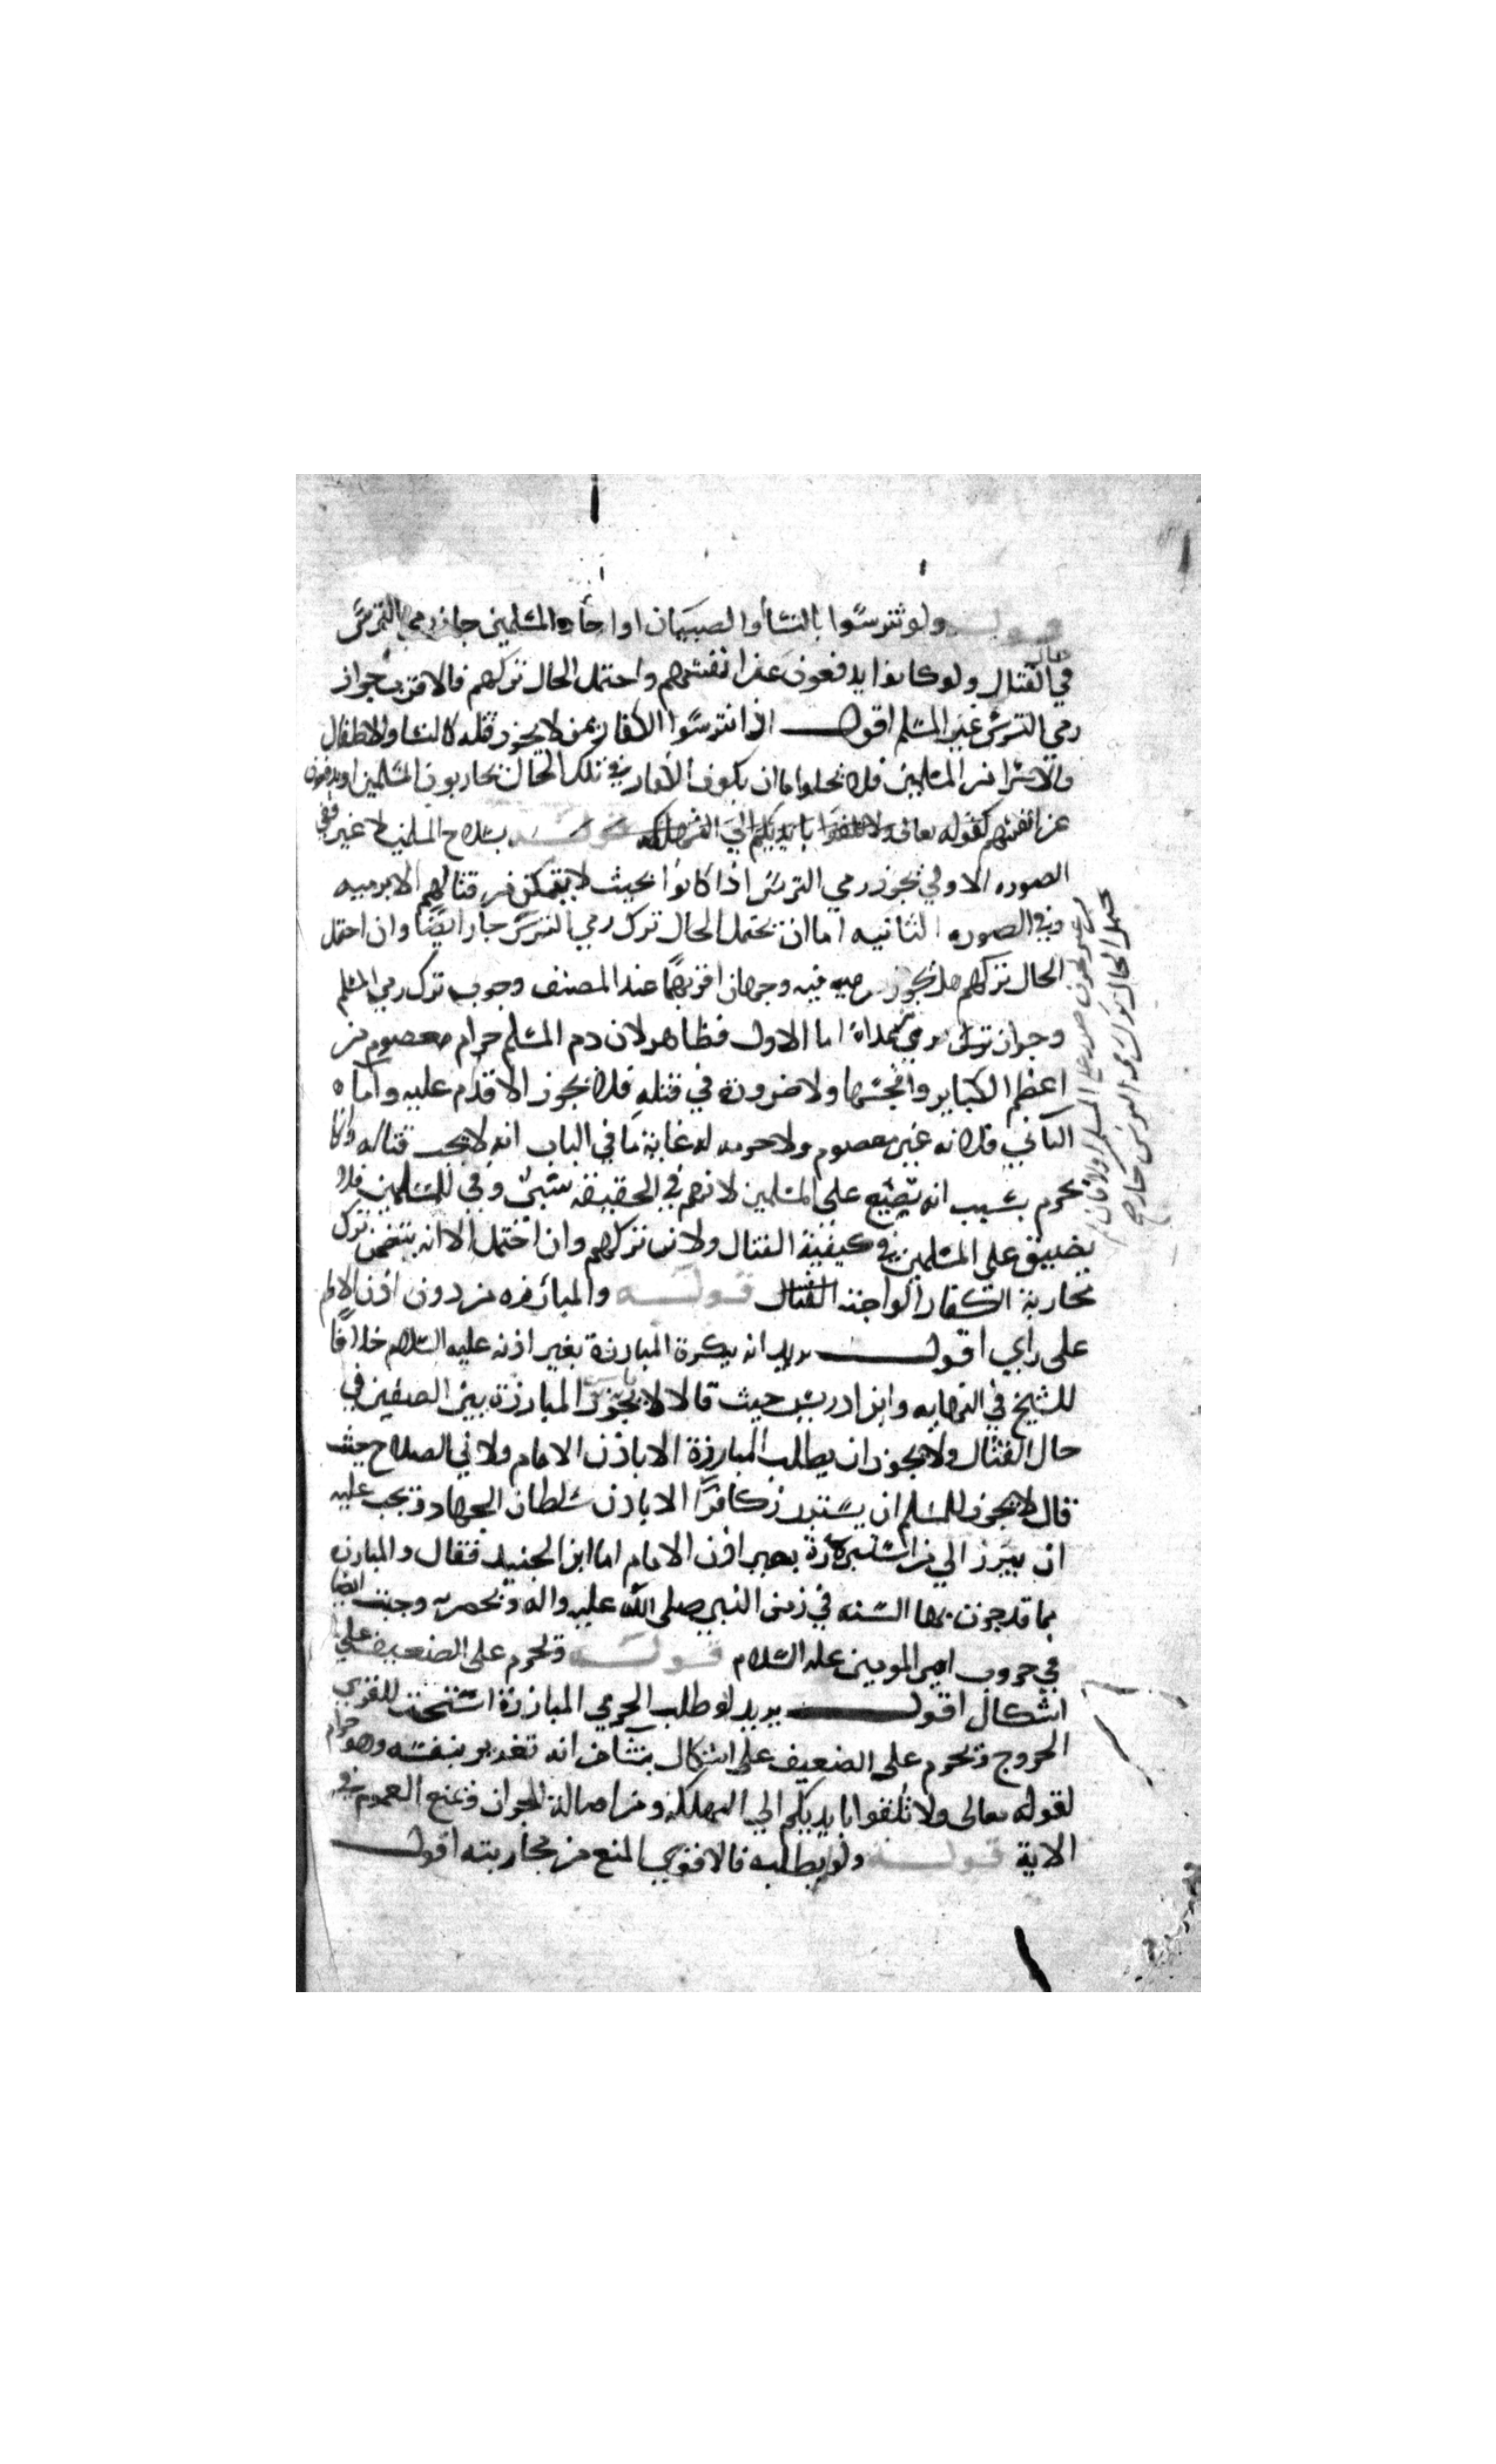 قوله ولو تترسوا بالنسا والصبيان او احاد المسلمين جاز رمي الترس
في القتال ولو كانوا يدفعون عن انفسهم واحتمل الحال تركهم فالاقرب جواز
رمي الترس غير المسلم اقول اذا تترسوا الكفار بمن لا يجوز قتله كالنسا والاطفال
والاسرا من المسلمين فلا يخلوا ما ان يكون الكفار في تلك الحال يحاربون المسلمين او يدفعون
عن انفسهم كقوله تعالى ولا تلقوا بايديكم الي التهلكه قوله بسلاح المسلمين لا غير ففي
الصوره الاولي يجوز رمي الترس اذا كانوا بحيث لا يتمكن من قتالهم الا برميه
وفي الصوره الثانيه اما ان يحتمل الحال ترك رمي الترس جاز ايضا وان احتمل
الحال تركهم هل يجوز فيه وجهان اقربهما عند المصنف وجوب ترك رمي المسلم
وجواز ترس رمي عداه اما الاول فظاهر لان دم المسلم حرام معصوم من
اعظم الكباير وافحشها ولا ضرورة في قتله فلا يجوز الاقدام عليه واما
الثاني فلانه غير معصوم ولا حرمه له غاية ما في الباب انه لا يجب قتاله وانما
يحرم بسبب انه يضيع على المسلمين لانهم في الحقيقة سبي وفي للمسلمين فلا
يضيق على المسلمين في كيفية القتال ولان تركهم وان احتمل الا انه يتضمن ترك
محاربة الكفار الواجبة القتال قوله والمبارزه من دون اذن الامام
على راي اقول يريد انه يكره المبارزة بغير اذنه عليه السلام خلافا
للشيخ في النهايه وابن ادريس حيث قالا لا يجوز المبارزة بين الصفين في
حال القتال ولا يجوز ان يطلب المبارزة الا باذن الامام ولابي الصلاح حيث
قال لا يجوز للمسلم ان يستبرز كافرا الا باذن سلطان الجهاد ويجب عليه
ان يبرز الي من استبرزه بغير اذن الامام اما ابن الجنيد فقال والمبارزه
مما قد جرت بها السنه في زمن النبي صلى الله عليه واله وبحضرته وجرت ايضا
في حروب امير المومنين عليه السلام قوله وتحرم على الضعيف علي
اشكال اقول يريد لو طلب الحربي المبارزة استحب للقوي
الخروج وتحرم على الضعيف على اشكال ينشا من انه تغرير بنفسه وهو حرام
لقوله تعالى ولا تلقوا بايديكم الي التهلكة ومن اصالة الجواز ومنع العموم في
الاية قوله ولو يطلبه فالاقوي المنع من محاربته اقول